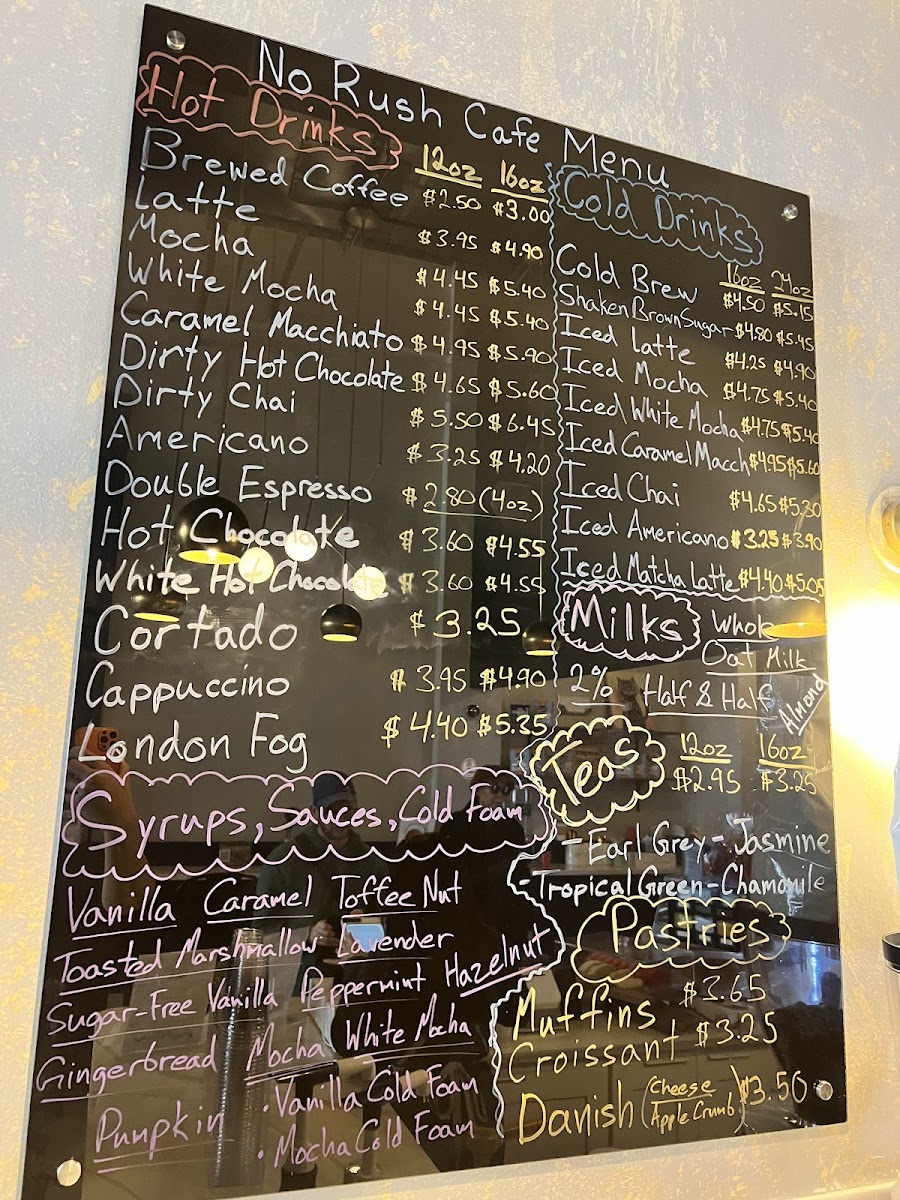 No Rush Cafe Menu
Hot Drinks
12oz 16oz
Brewed Coffee $2.50 $3.00
Latte $3.95 $4.90
Mocha $4.45 $5.40
White Mocha $4.45 $5.40
Caramel Macchiato $4.95 $5.90
Dirty Hot Chocolate $4.65 $5.60
Dirty Chai $5.50 $6.45
Americano $3.25 $4.20
Double Espresso $2.80 (4oz)
Hot Chocolate $3.60 $4.55
White Hot Chocolate $3.60 $4.55
Cortado $3.25
Cappuccino $3.95 $4.90
London Fog $4.40 $5.35
Syrups, Sauces, Cold Foam
Vanilla Caramel Toffee Nut
Toasted Marshmallow Lavender
Sugar-Free Vanilla Peppermint Hazelnut
Gingerbread Mocha White Mocha
Pumpkin
• Vanilla Cold Foam
• Mocha Cold Foam
Cold Drinks
16oz 24oz
Cold Brew $4.50 $5.15
Shaken Brown Sugar $4.80 $5.45
Iced Latte $4.25 $4.90
Iced Mocha $4.75 $5.40
Iced White Mocha $4.75 $5.40
Iced Caramel Macch $4.95 $5.60
Iced Chai $4.65 $5.30
Iced Americano $3.25 $3.90
Iced Matcha Latte $4.40 $5.05
Milks Whole
Oat Milk
2% Half & Half Almond
Teas 12oz 16oz
$2.95 $3.25
- Earl Grey - Jasmine
- Tropical Green - Chamomile
Pastries
Muffins $3.65
Croissant $3.25
Danish (Cheese Apple Crumb) $3.50